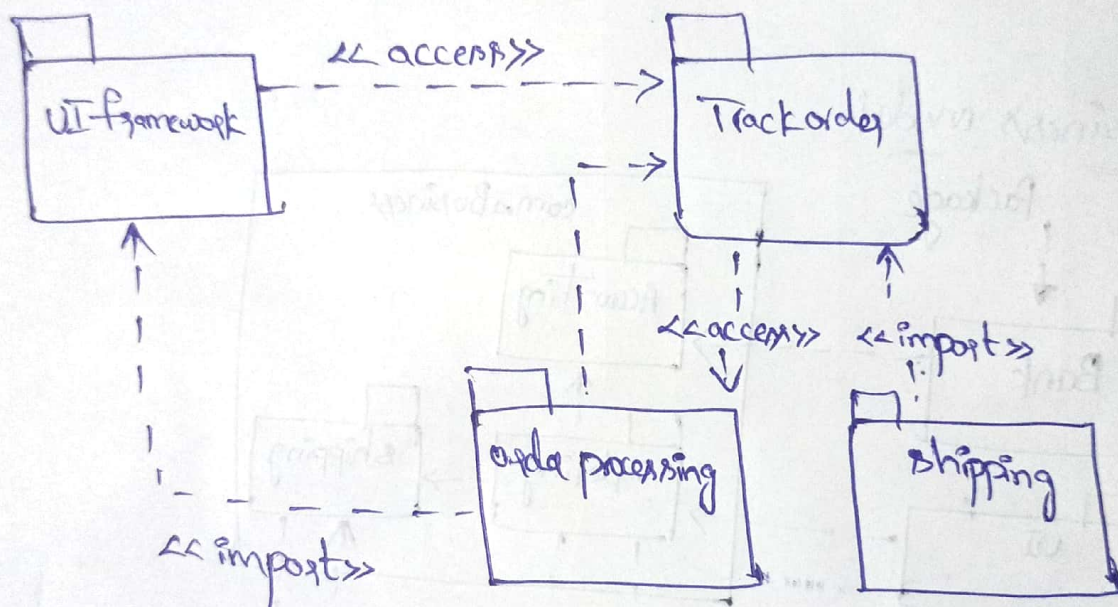 <<access>>
UI-framework
Trackorder
<<access>>
<<import>>
order processing
shipping
<<import>>